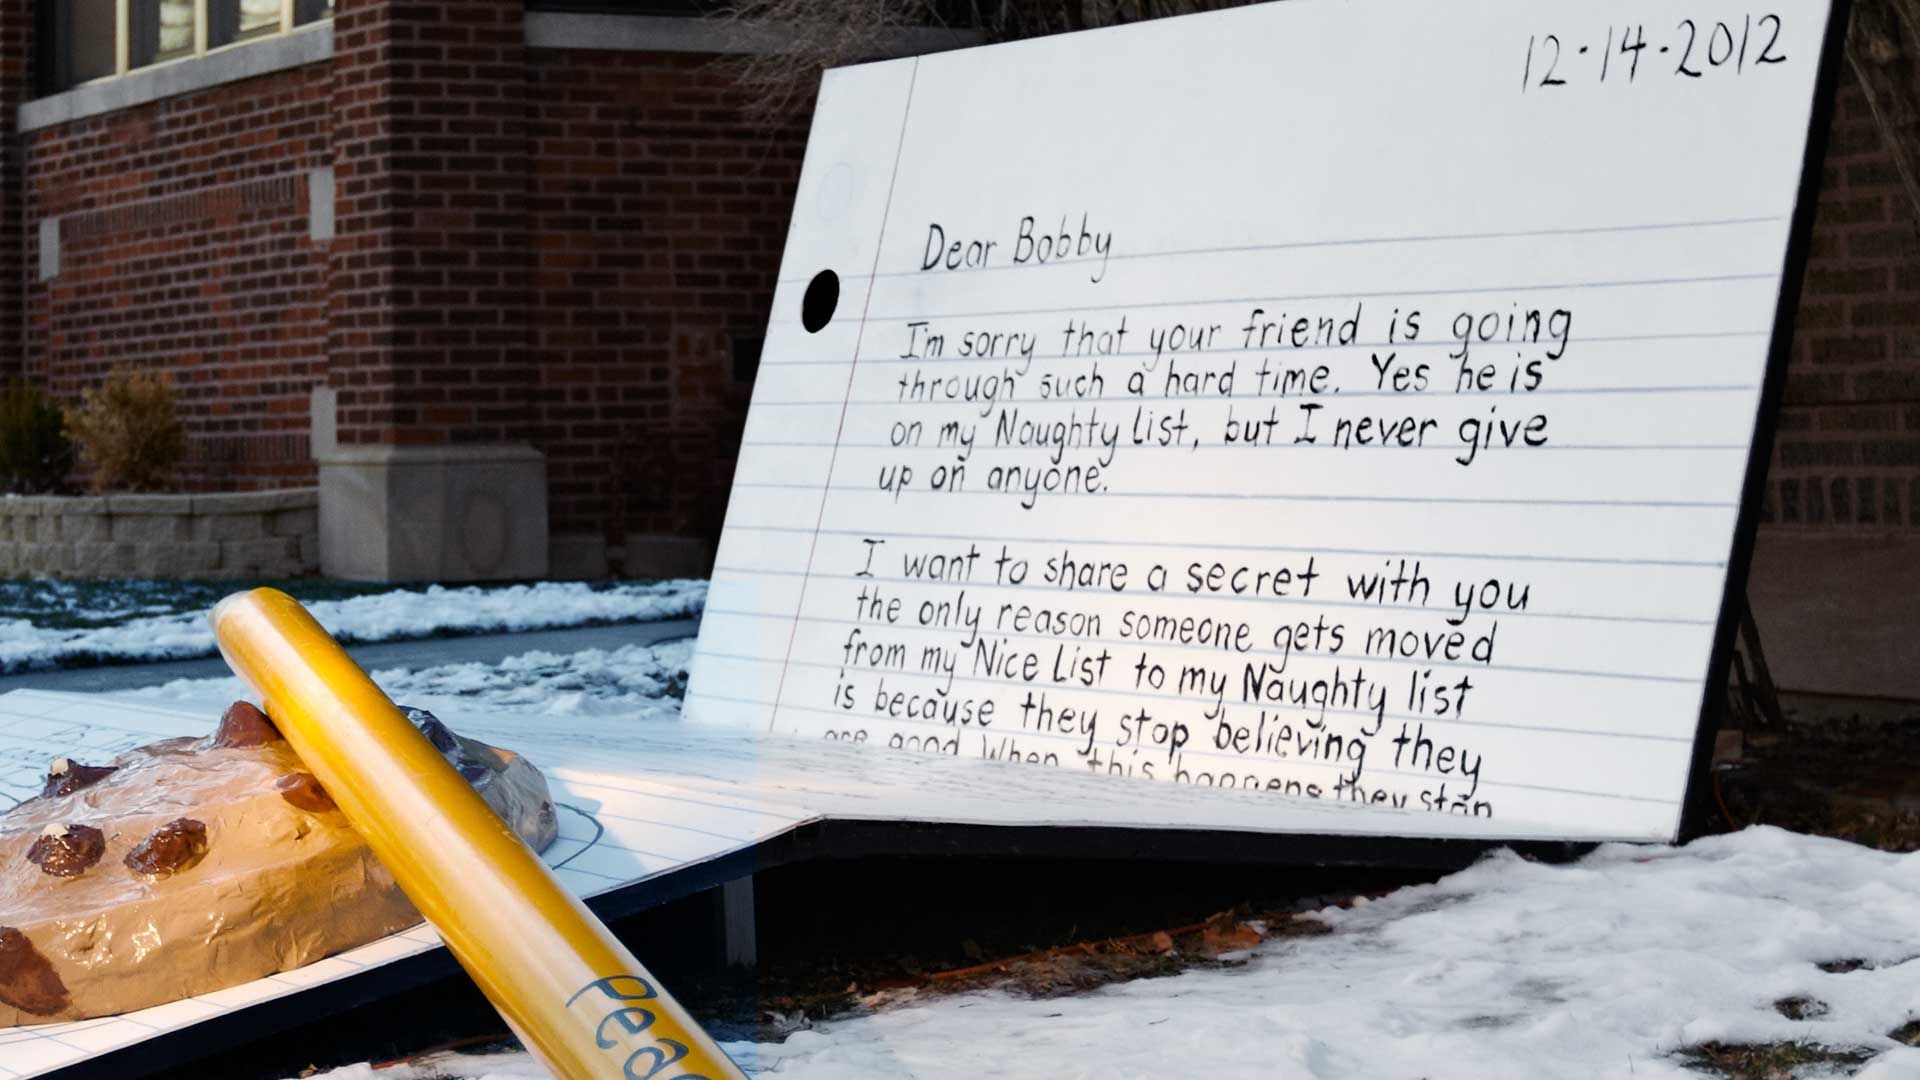 12·14·2012
Dear Bobby
I'm sorry that your friend is going
through such a hard time. Yes he is
on my Naughty list, but I never give
up on anyone.
I want to share a secret with you
the only reason someone gets moved
from my Nice List to my Naughty list
is because they stop believing they
are good When this happens they stop